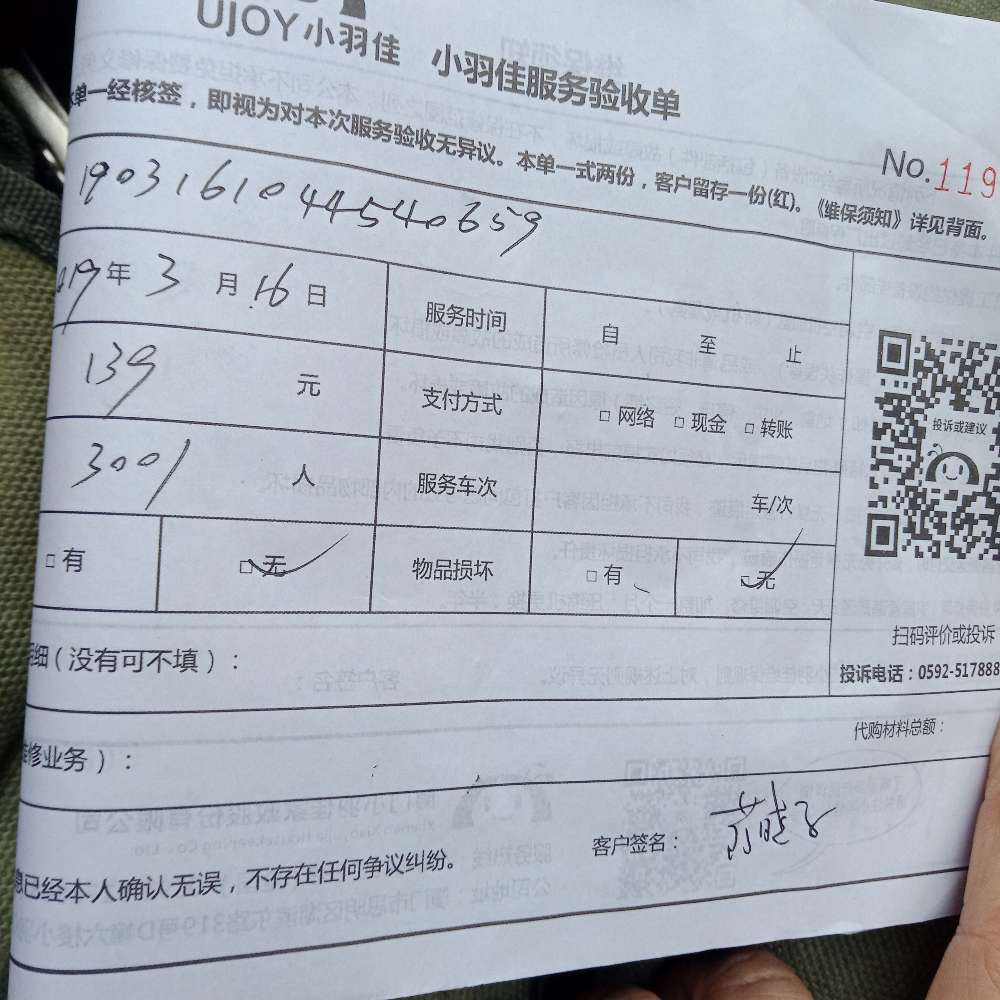 UJOY小羽佳 小羽佳服务验收单
单一经核签，即视为对本次服务验收无异议。本单一式两份，客户留存一份(红)。《维保须知》详见背面。
No.119
1903161044540659
19年3月16日 服务时间 自 至 止
139 元 支付方式 □网络 □现金 □转账
3001 人 服务车次 车/次
□有 □无 物品损坏 □有 □无
投诉或建议
扫码评价或投诉
投诉电话：0592-517888
细(没有可不填)：
代购材料总额：
修业务)：
客户签名：
已经本人确认无误，不存在任何争议纠纷。